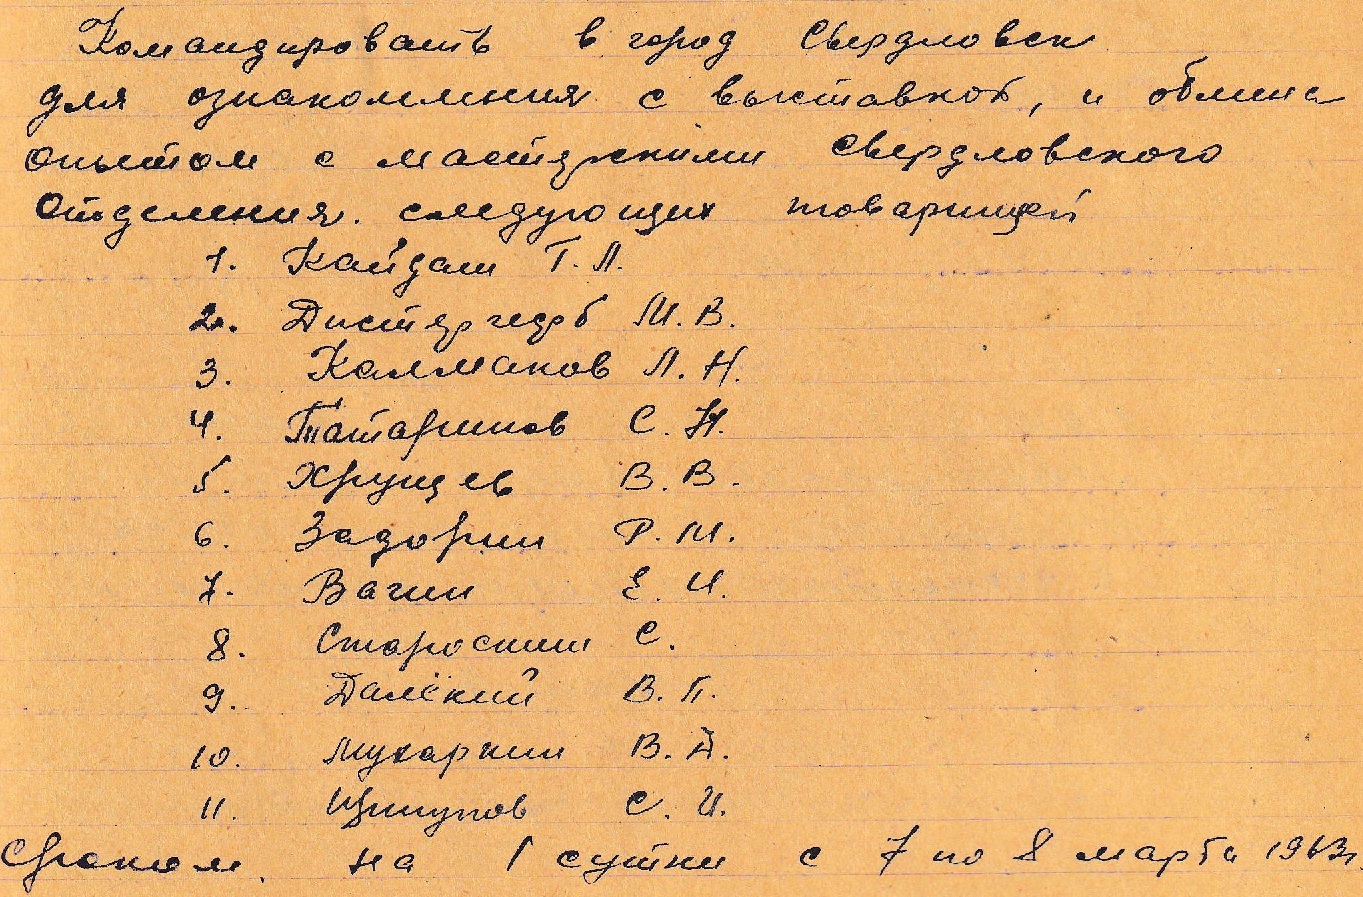 Командировать в город Свердловск
для ознакомления с выставкой, и обмена
опытом с мастерскими Свердловского
Отделения. следующих товарищей
1. Кайдаш Т. Л.
2. Дистергефт М. В.
3. Калмаков Л. Н.
4. Татаринов С. Н.
5. Хрущев В. В.
6. Задорин Р. М.
7. Вагин Е. И.
8. Старосtin С.
9. Далёкий В. П.
10. Мухаркин В. Д.
11. С. И.
Сроком. на 1 сутки с 7 по 8 марта 1963г.